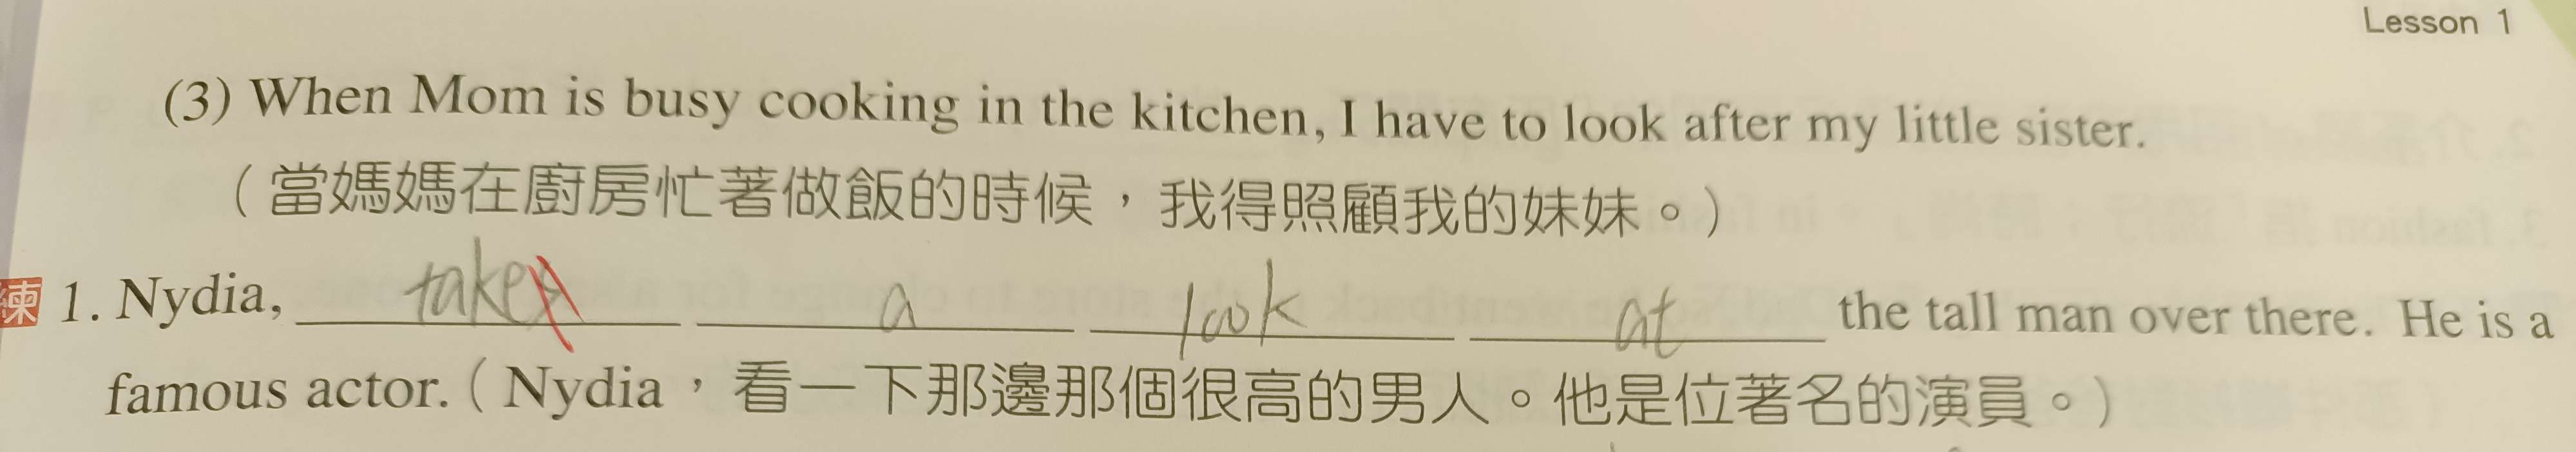 Lesson 1
(3) When Mom is busy cooking in the kitchen, I have to look after my little sister.
（當媽媽在廚房忙著做飯的時候，我得照顧我的妹妹。）
練 1. Nydia, takes a look at the tall man over there. He is a
famous actor.（Nydia，看一下那邊那個很高的男人。他是位著名的演員。）